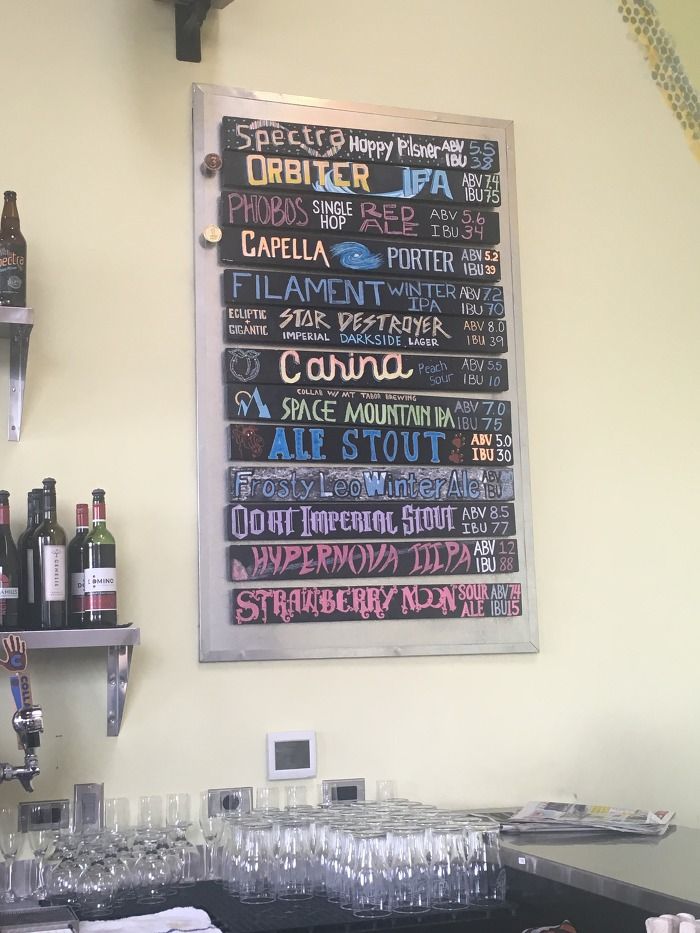 Spectra Hoppy Pilsner ABV 5.5 IBU 38
ORBITER IPA ABV 7.4 IBU 75
PHOBOS SINGLE HOP RED ALE ABV 5.6 IBU 34
CAPELLA PORTER ABV 5.2 IBU 39
FILAMENT WINTER IPA ABV 7.2 IBU 70
ECLIPTIC + GIGANTIC STAR DESTROYER ABV 8.0
IMPERIAL DARKSIDE LAGER IBU 39
Carina Peach Sour ABV 5.5 IBU 10
COLLAB W/ MT TABOR BREWING
SPACE MOUNTAIN IPA ABV 7.0 IBU 75
ALE STOUT ABV 5.0 IBU 30
Frosty Leo Winter Ale ABV IBU
OORT IMPERIAL STOUT ABV 8.5 IBU 77
HYPERNOVA IIIPA ABV 12 IBU 88
STRAWBERRY MOON SOUR ALE ABV 7.4 IBU 15
Spectra
GENESIS
DOMINO